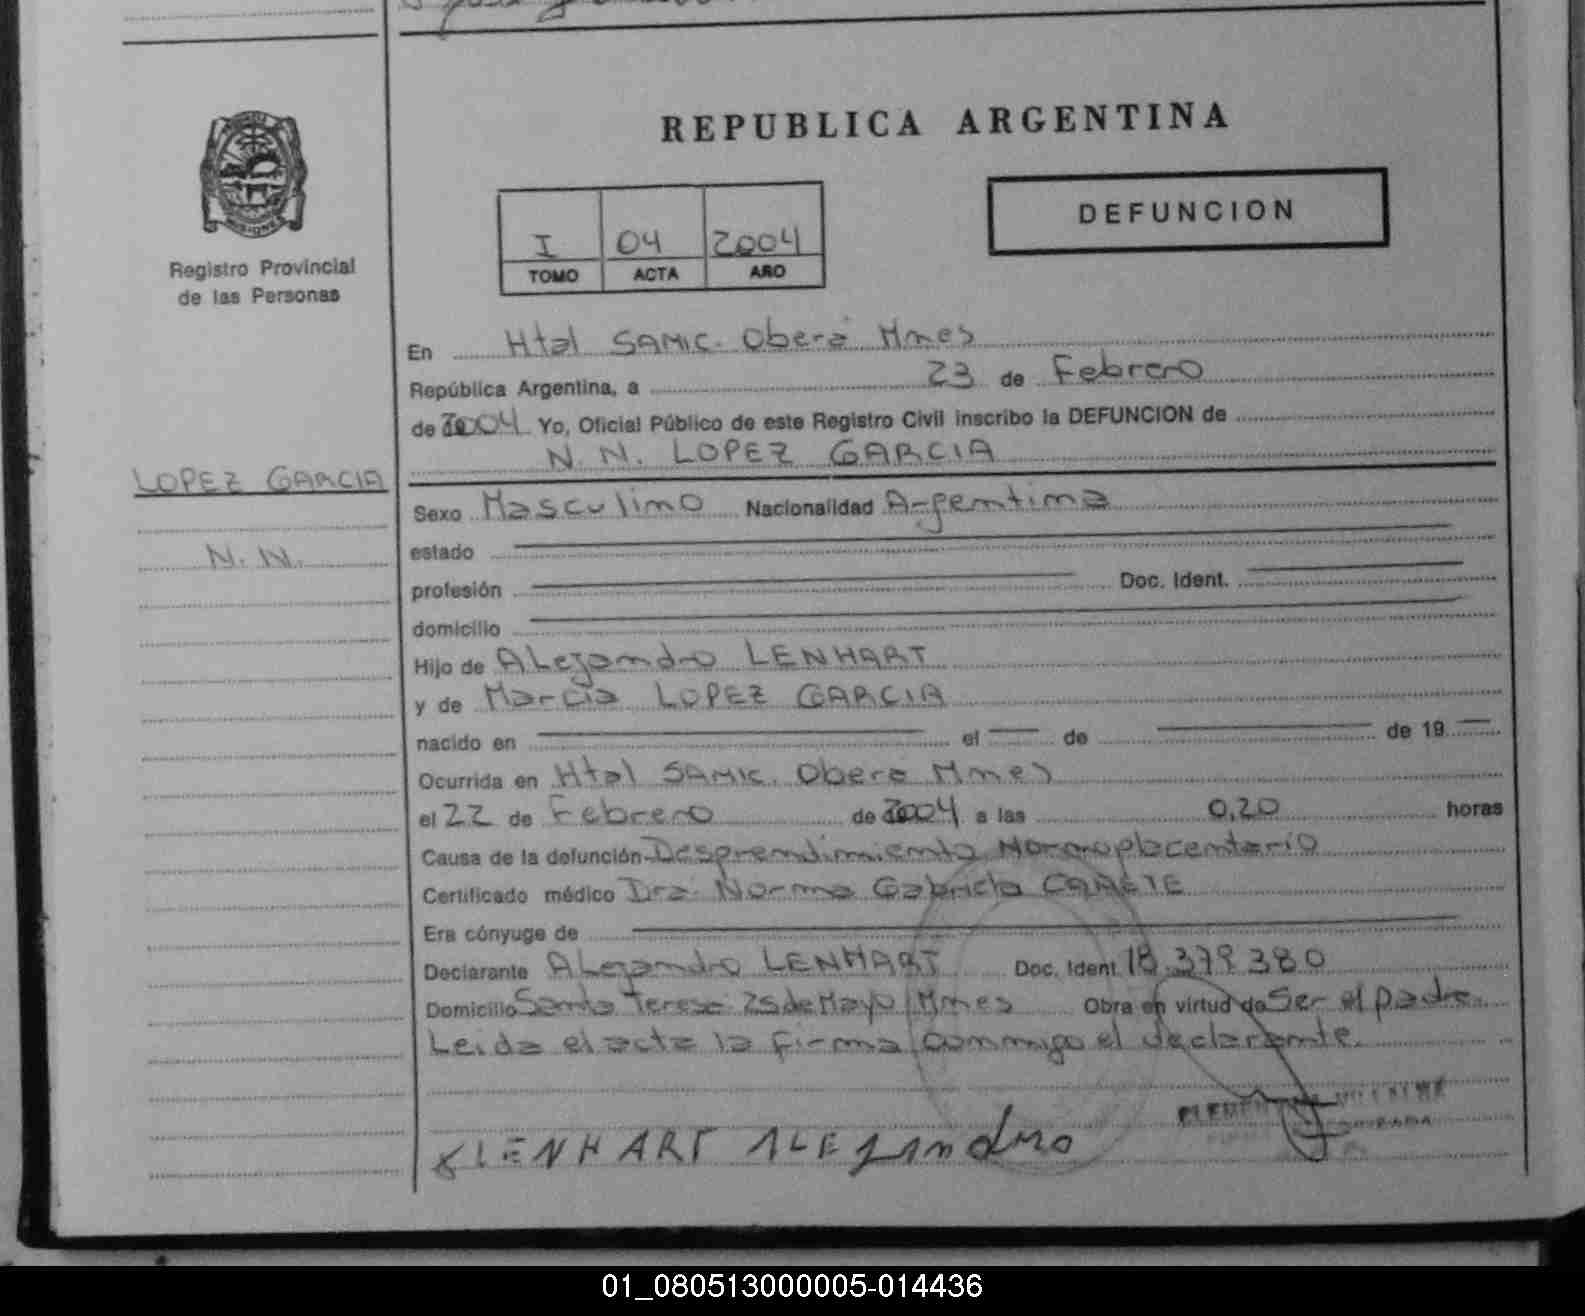 REPUBLICA ARGENTINA
DEFUNCION
I 04 2004
TOMO ACTA AÑO
Registro Provincial
de las Personas
En Htal SAMIC. Oberá Mnes
República Argentina, a 23 de Febrero
de 2004 Yo, Oficial Público de este Registro Civil inscribo la DEFUNCION de
N. N. LOPEZ GARCIA
LOPEZ GARCIA
N. N.
Sexo Masculino Nacionalidad Argentina
estado
profesión Doc. Ident.
domicilio
Hijo de ALejandro LENHART
y de Marcia LOPEZ GARCIA
nacido en el de de 19
Ocurrida en Htal SAMIC. Obera Mnes
el 22 de Febrero de 2004 a las 0,20 horas
Causa de la defunción Desprendimiento Normoplacentario
Certificado médico Dra. Norma Gabriela CAÑETE
Era cónyuge de
Declarante ALejandro LENHART Doc. Ident 18.379.380
Domicilio Santa Teresa 25 de Mayo Mnes Obra en virtud de Ser el padre.
Leida el acta la firma conmigo el declarante.
LENHART ALEJAndro
01_080513000005-014436